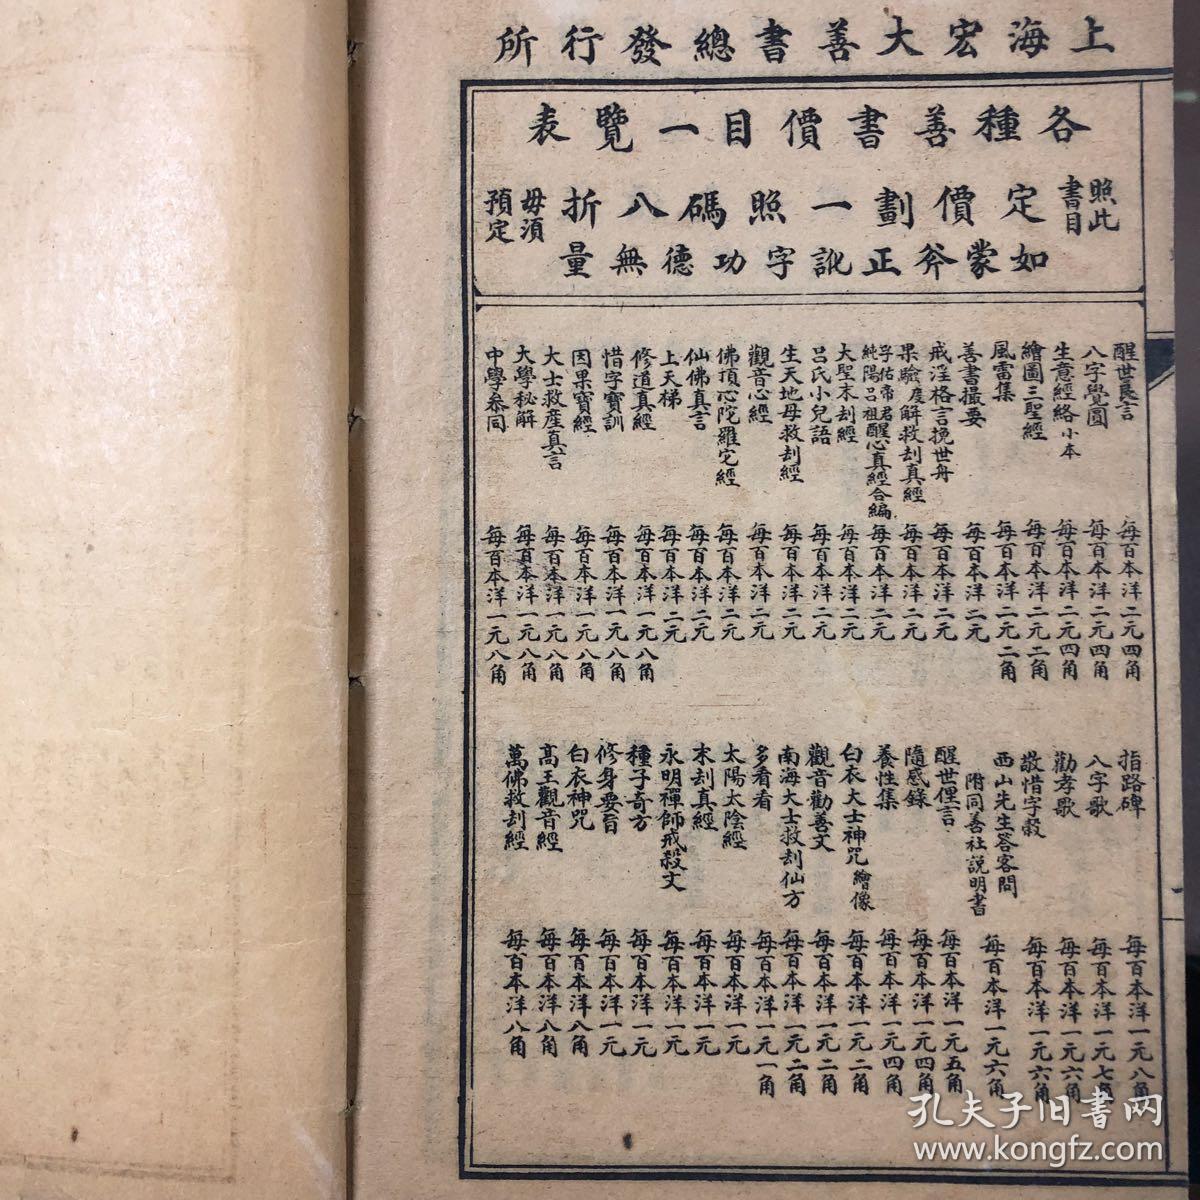 上海宏大善書總發行所
各種善書價目一覽表
照此書目
定價劃一照碼八折
毋須預定
如蒙斧正訛字功德無量
醒世良言 每百本洋二元四角
八字覺圓 每百本洋二元四角
生意經絡小本 每百本洋二元四角
繪圖三聖經 每百本洋二元二角
風雷集 每百本洋二元二角
善書撮要 每百本洋二元
戒淫格言挽世舟 每百本洋二元
果驗度解救刦真經 每百本洋二元
孚佑帝君純陽呂祖醒心真經合編 每百本洋二元
大聖末刦經 每百本洋二元
呂氏小兒語 每百本洋二元
生天地母救刦經 每百本洋二元
觀音心經 每百本洋二元
佛頂心陀羅尼經 每百本洋二元
仙佛真言 每百本洋二元
上天梯 每百本洋二元
修道真經 每百本洋一元八角
惜字寶訓 每百本洋一元八角
因果寶經 每百本洋一元八角
大士救產真言 每百本洋一元八角
大學秘解 每百本洋一元八角
中學參同 每百本洋一元八角
指路碑 每百本洋一元八角
八字歌 每百本洋一元七角
勸孝歌 每百本洋一元六角
敬惜字穀 每百本洋一元六角
西山先生答客問
附同善社説明書 每百本洋一元六角
醒世俚言 每百本洋一元五角
隨感錄 每百本洋一元四角
養性集 每百本洋一元四角
白衣大士神咒繪像 每百本洋一元二角
觀音勸善文 每百本洋一元二角
南海大士救刦仙方 每百本洋一元二角
多看看 每百本洋一元一角
太陽太陰經 每百本洋一元
末刦真經 每百本洋一元
永明禪師戒殺文 每百本洋一元
種子奇方 每百本洋一元
修身要旨 每百本洋一元
白衣神咒 每百本洋八角
高王觀音經 每百本洋八角
萬佛救刦經 每百本洋八角
孔夫子旧书网
www.kongfz.com